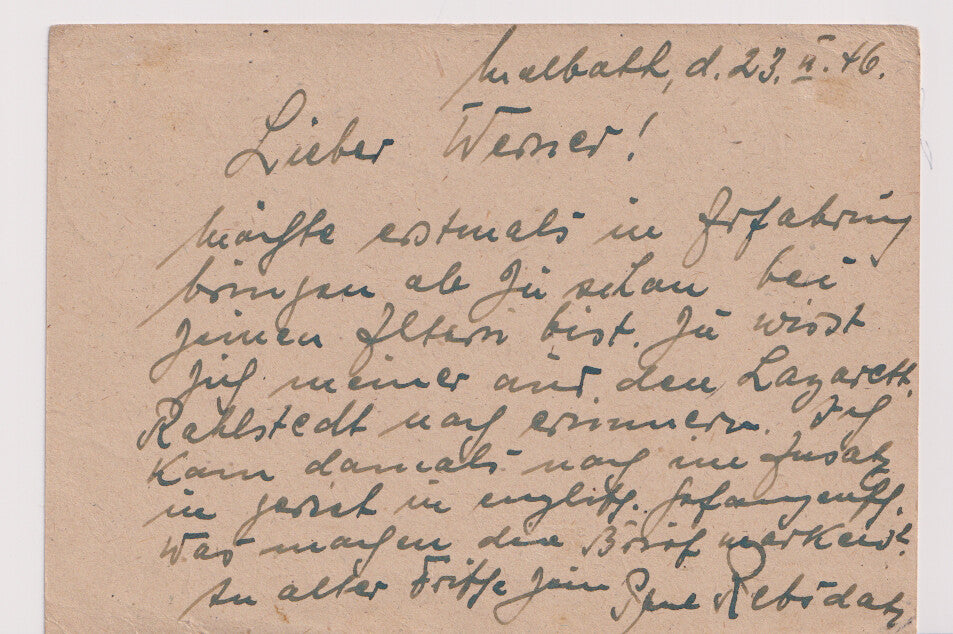 d. 23. II. 46.
Lieber Werner!
Möchte erstmals in Erfahrung
bringen ob Du schon bei
Deinen Eltern bist. Du wirst
Dich meiner aus den Lazarett
Rahlstedt noch erinnern. Ich
kam damals noch im Einsatz
u. geriet in englisch. Gefangensch.
Was machen die Briefmarken?
In alter Frische Dein